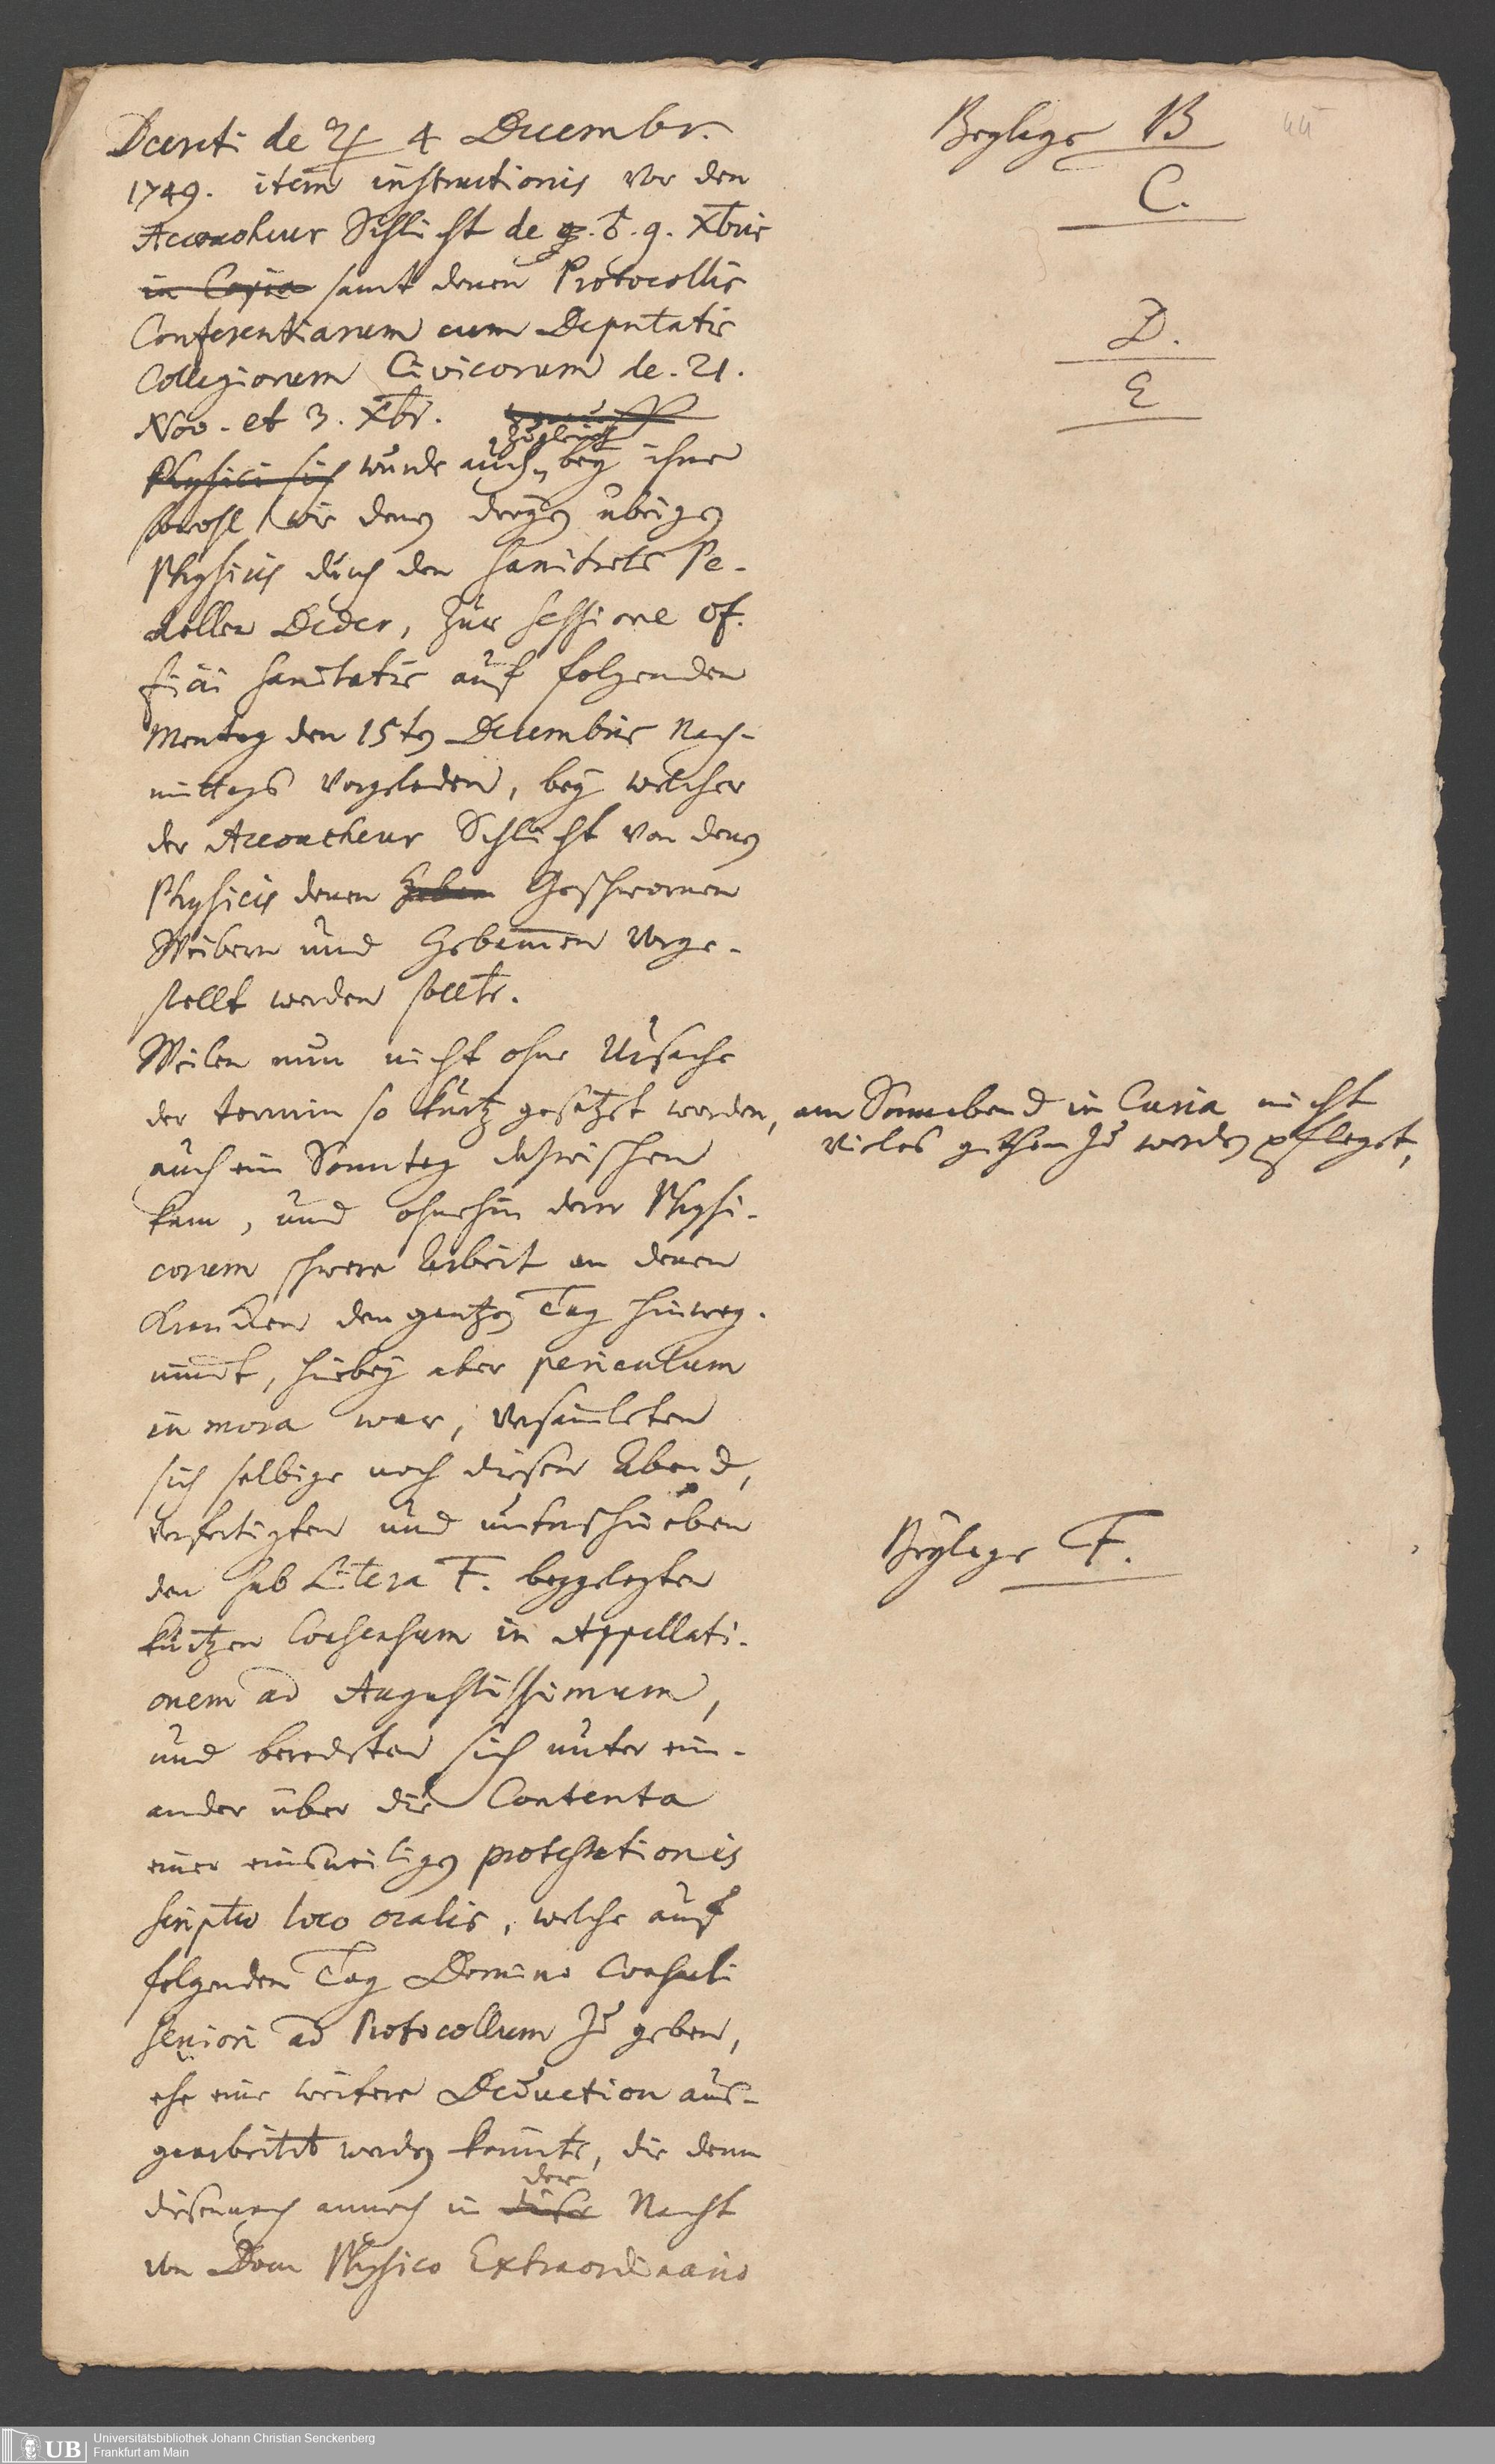 Decreti de ♃ 4 Decembr.
Beylage B
44
1749. item instructionis vor den
C.
Accoucheur Schlicht de 9. Xbris
in Copia samt denen Protocollis
Conferentiarum cum Deputatis
D.
Collegiorum Civicorum de. 21.
E
Nov. et 3. Xbr.
zugleich
Physici sich wurde auch bey ihme
sowohl wie denen dreyen übrigen
Physicis durch den Sanitaets Pe-
dellen Deder, zur Sessione Of-
ficii Sanitatis auf folgenden
Montag den 15ten Decembris Nach-
mittags vorgeladen, bey welcher
der Accoucheur Schlicht von denen
Physicis denen Heben Geschwornen
Weibern und Hebammen vorge-
stellt werden sollte.
Weilen nun nicht ohne Ursache
der termin so kurtz gesetzet worden, am Sonnabend in Curia nicht
vieles gethan zu werden pfleget,
auch ein Sonntag dazwischen
kam, und ohnehin derer Physi-
corum schwere Arbeit an denen
Krancken den gantzen Tag hinweg-
nimmt, hierbey aber periculum
in mora war, versammleten
sich selbige noch diesen Abend,
verfertigten und unterschrieben
Beylage F.
den sub Litera F. beygelegten
kurtzen Consensum in Appellati-
onem ad Augustissimum,
und beredeten sich unter ein-
ander über die Contenta
einer einsweiligen protestationis
scripto loco oralis, welche auf
folgenden Tag Domino Consuli
Seniori ad Protocollum zu geben,
ehe eine weitere Deduction aus-
gearbeitet werden konnte, die denn
der
diesemnach annoch in dieser Nacht
von Dom Physico Extraordinario
UB Universitätsbibliothek Johann Christian Senckenberg
Frankfurt am Main